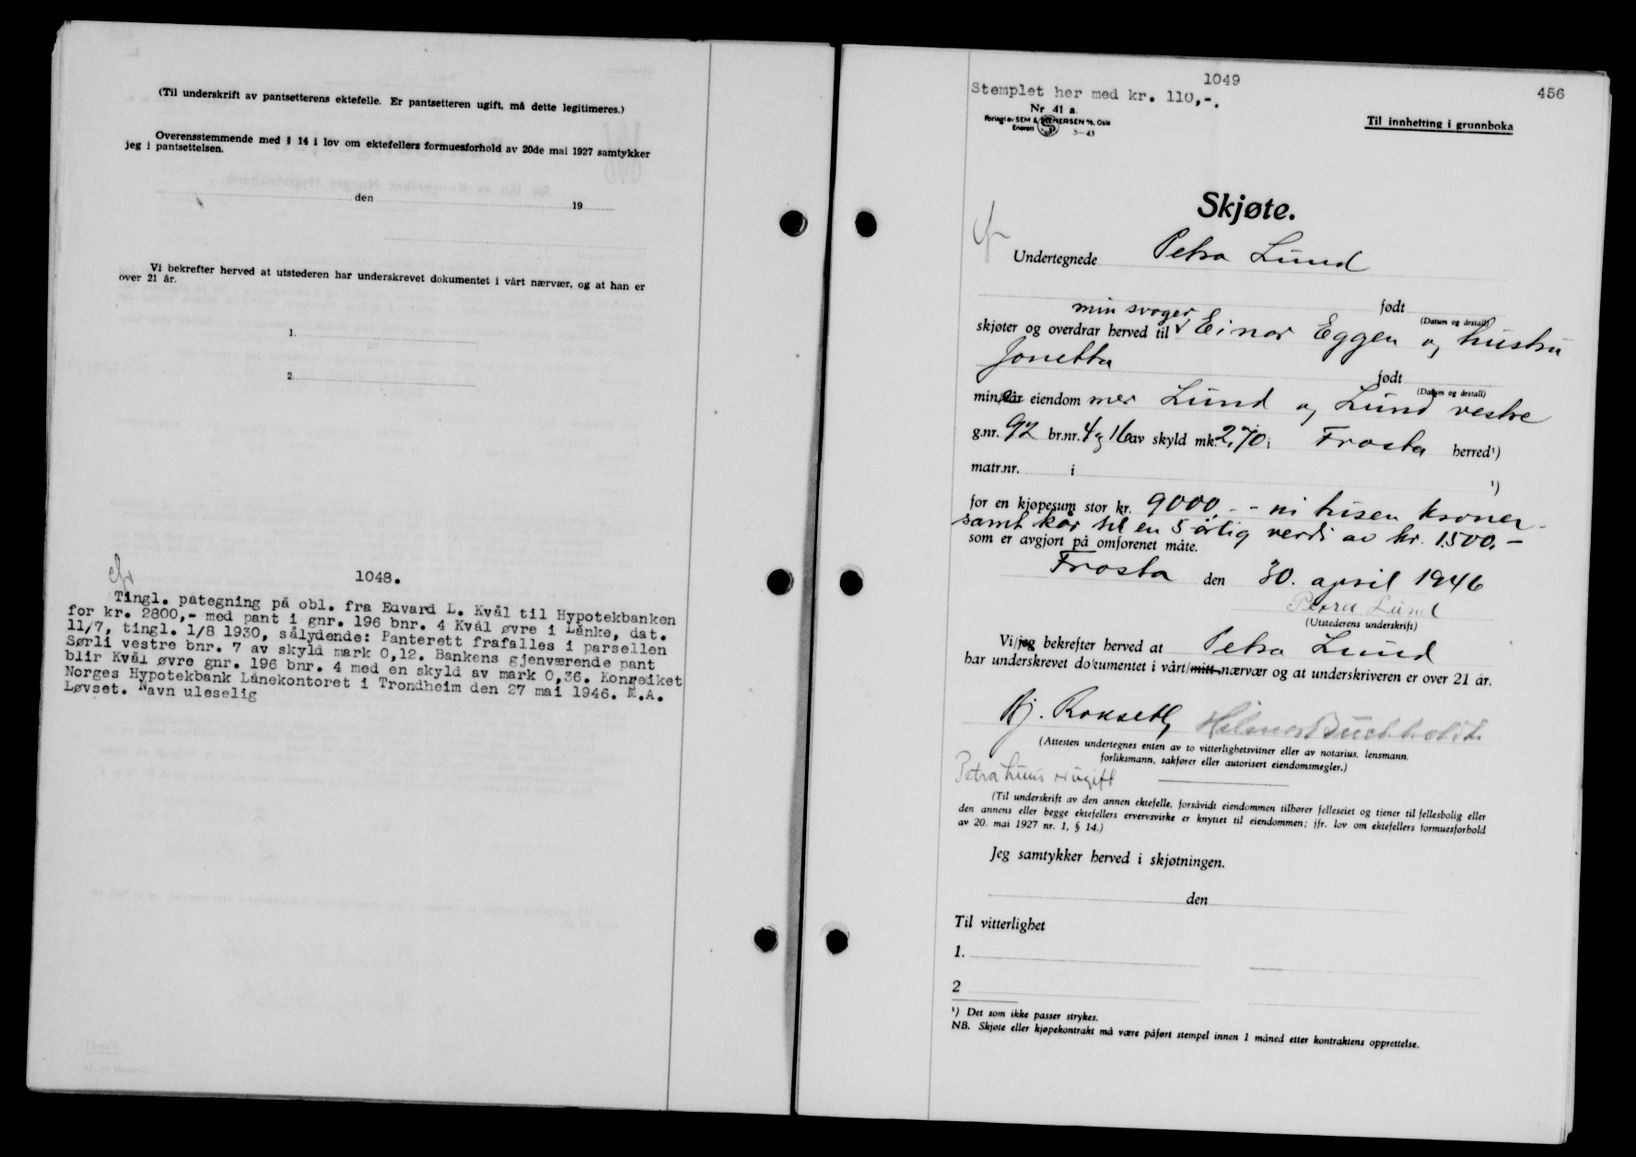 (Til underskrift av pantsetterens ektefelle. Er pantsetteren ugift, må dette legitimeres.)
Overensstemmende med § 14 i lov om ektefellers formuesforhold av 20de mai 1927 samtykker
jeg i pantsettelsen.
den 19
Vi bekrefter herved at utstederen har underskrevet dokumentet i vårt nærvær, og at han er
over 21 år.
1.
2.
1048.
Tingl. pategning på obl. fra Edvard L. Kvål til Hypotekbanken
for kr. 2800,- med pant i gnr. 196 bnr. 4 Kvål øvre i Lånke, dat.
11/7, tingl. 1/8 1930, sålydende: Panterett frafalles i parsellen
Sørli vestre bnr. 7 av skyld mark 0,12. Bankens gjenværende pant
blir Kvål øvre gnr. 196 bnr. 4 med en skyld av mark 0,36. Kongeriket
Norges Hypotekbank Lånekontoret i Trondheim den 27 mai 1946. M.A.
Løvset. Navn uleselig
1049
456
Stemplet her med kr. 110,-.
Nr 41 a.
Forlagt av SEM & STENERSEN A/S, Oslo
Enerett 5-43
Til innhefting i grunnboka
Skjøte.
Undertegnede Petra Lund
født
(Datum og årstall)
min svoger
skjøter og overdrar herved til Einar Eggen og hustru
Jonetta
født
(Datum og årstall)
min/vår eiendom mer Lund og Lund vestre
g.nr. 92 br.nr. 4 og 16 av skyld mk. 2,70 i Frosta herred¹)
matr.nr. i ¹)
for en kjøpesum stor kr. 9000,- - ni tusen kroner -
samt kår til en 5 årlig verdi av kr. 1500,-
som er avgjort på omforenet måte.
Frosta den 30. april 1946
Petra Lund
(Utstederens underskrift)
Vi/jeg bekrefter herved at Petra Lund
har underskrevet dokumentet i vårt/mitt nærvær og at underskriveren er over 21 år.
Hilmar Buchholdt
(Attesten undertegnes enten av to vitterlighetsvitner eller av notarius, lensmann,
forliksmann, sakfører eller autorisert eiendomsmegler.)
Petra Lund er ugift
(Til underskrift av den annen ektefelle, forsåvidt eiendommen tilhører felleseiet og tjener til fellesbolig eller
den annens eller begge ektefellers ervervsvirke er knyttet til eiendommen; jfr. lov om ektefellers formuesforhold
av 20. mai 1927 nr. 1, § 14.)
Jeg samtykker herved i skjøtningen.
den
Til vitterlighet
1.
2
¹) Det som ikke passer strykes.
NB. Skjøte eller kjøpekontrakt må være påført stempel innen 1 måned etter kontraktens opprettelse.